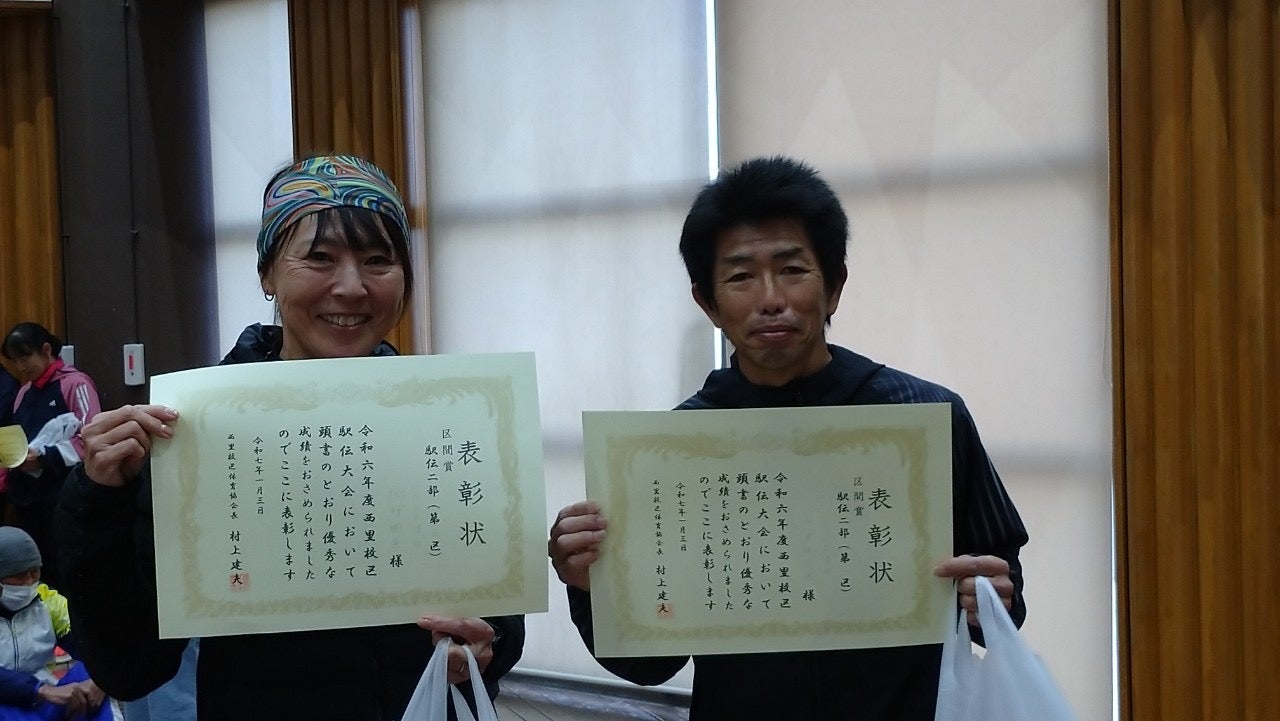 表彰状
区間賞
駅伝二部（第 区）
様
令和六年度西里校区
駅伝大会において
頭書のとおり優秀な
成績をおさめられました
のでここに表彰します
令和七年一月三日
西里校区体育協会長 村上建夫
表彰状
区間賞
駅伝二部（第 区）
様
令和六年度西里校区
駅伝大会において
頭書のとおり優秀な
成績をおさめられました
のでここに表彰します
令和七年一月三日
西里校区体育協会長 村上建夫